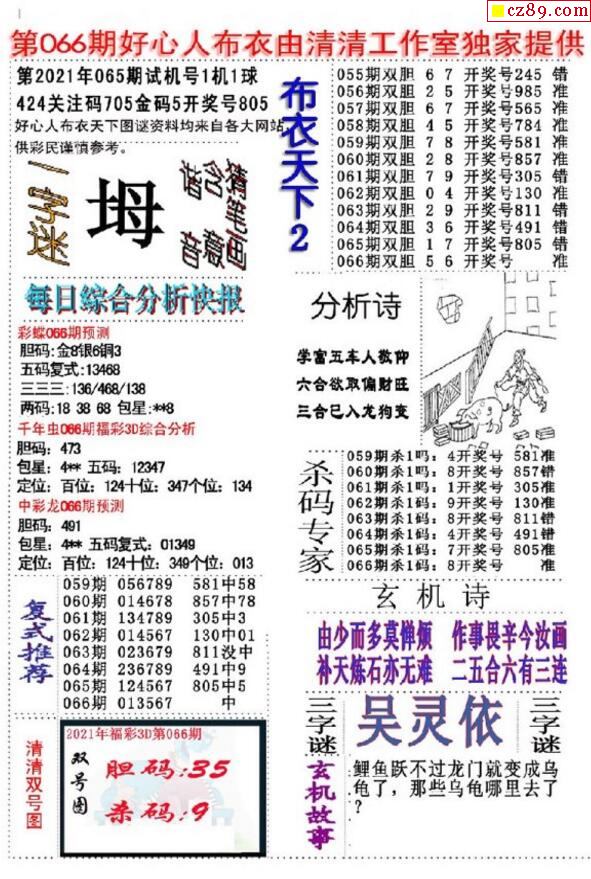 cz89.com
第066期好心人布衣由清清工作室独家提供
第2021年065期试机号1机1球
424关注码705金码5开奖号805
好心人布衣天下图谜资料均来自各大网站
供彩民谨慎参考。
一字迷
坶
猜笔画
含意
谐音
布衣天下2
055期双胆 6 7 开奖号245 错
056期双胆 2 5 开奖号985 准
057期双胆 6 7 开奖号565 准
058期双胆 4 5 开奖号784 准
059期双胆 7 8 开奖号581 准
060期双胆 2 8 开奖号857 准
061期双胆 7 9 开奖号305 错
062期双胆 0 4 开奖号130 准
063期双胆 2 9 开奖号811 错
064期双胆 3 6 开奖号491 错
065期双胆 1 7 开奖号805 错
066期双胆 5 6 开奖号 准
每日綜合分析快报
彩蝶066期预测
胆码:金8银6铜3
五码复式:13468
三三三:136/468/138
两码:18 38 68 包星:**8
千年虫066期福彩3D综合分析
胆码: 473
包星: 4** 五码: 12347
定位: 百位: 124十位: 347个位: 134
中彩龙066期预测
胆码: 491
包星: 4** 五码复式: 01349
定位: 百位: 124十位: 349个位: 013
分析诗
学富五车人敬仰
六合欲取偏财旺
三合已入龙狗变
杀码专家
059期杀1吗: 4开奖号 581准
060期杀1吗: 8开奖号 857错
061期杀1吗: 1开奖号 305准
062期杀1码: 9开奖号 130准
063期杀1码: 8开奖号 811错
064期杀1码: 4开奖号 491错
065期杀1码: 7开奖号 805准
066期杀1码: 8开奖号 准
复式推荐
059期 056789 581中58
060期 014678 857中78
061期 134789 305中3
062期 014567 130中01
063期 023679 811没中
064期 236789 491中9
065期 124567 805中5
066期 013567 中
玄机诗
由少而多莫惮烦 作事畏辛今汝画
补天炼石亦无难 二五合六有三连
三字谜
吴灵依
三字谜
清清双号图
2021年福彩3D第066期
双号图
胆码:35
杀码:9
玄机故事
鲤鱼跃不过龙门就变成乌
龟了，那些乌龟哪里去了
？